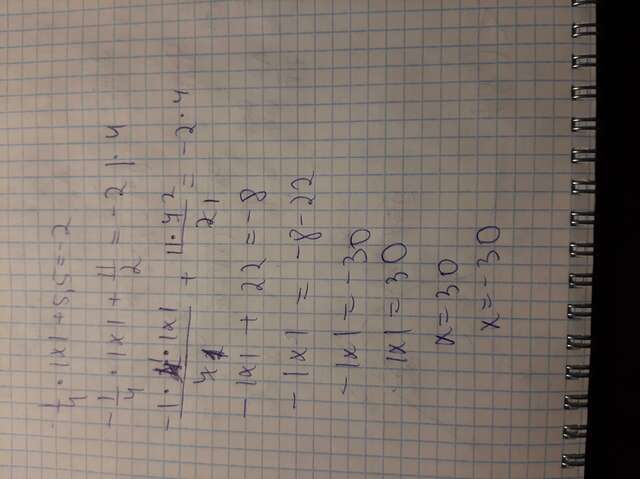 -1/4 · |x| + 5,5 = -2
-1/4 · |x| + 11/2 = -2 | · 4
-1·4·|x|/4 1 + 11·4 2/2 1 = -2 · 4
-|x| + 22 = -8
-|x| = -8-22
-|x| = -30
|x| = 30
x = 30
x = -30